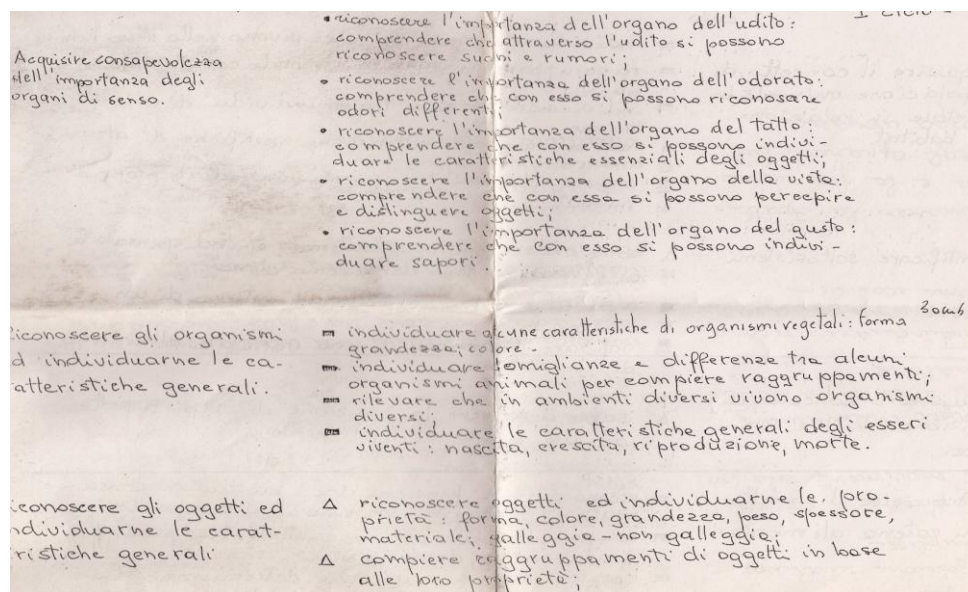 I Ciclo -
Acquisire consapevolezza
dell'importanza degli
organi di senso.
• riconoscere l'importanza dell'organo dell'udito:
comprendere che attraverso l'udito si possono
riconoscere suoni e rumori;
• riconoscere l'importanza dell'organo dell'odorato:
comprendere che con esso si possono riconoscere
odori differenti;
• riconoscere l'importanza dell'organo del tatto:
comprendere che con esso si possono indivi-
duare le caratteristiche essenziali degli oggetti;
• riconoscere l'importanza dell'organo della vista:
comprendere che con essa si possono percepire
e distinguere oggetti;
• riconoscere l'importanza dell'organo del gusto:
comprendere che con esso si possono indivi-
duare sapori.
iconoscere gli organismi
d individuarne le ca-
atteristiche generali.
individuare alcune caratteristiche di organismi vegetali: forma
grandezza; colore.
individuare somiglianze e differenze tra alcuni
organismi animali per compiere raggruppamenti;
rilevare che in ambienti diversi vivono organismi
diversi;
individuare le caratteristiche generali degli esseri
viventi: nascita, crescita, riproduzione, morte.
iconoscere gli oggetti ed
ndividuarne le carat-
ristiche generali
Δ riconoscere oggetti ed individuarne le pro-
prietà: forma, colore, grandezza, peso, spessore,
materiale; galleggia - non galleggia;
Δ compiere raggruppamenti di oggetti in base
alle loro proprietà;